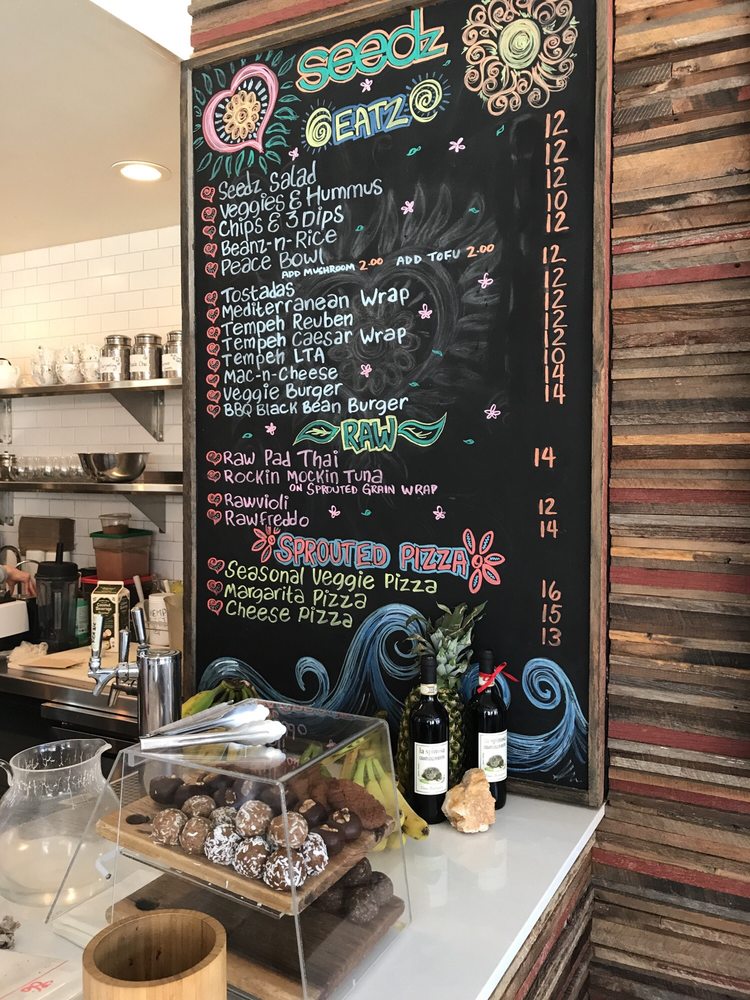 seedz
EATZ
Seedz Salad 12
Veggies & Hummus 12
Chips & 3 Dips 12
Beanz-n-Rice 10
Peace Bowl 12
ADD MUSHROOM 2.00 ADD TOFU 2.00
Tostadas 12
Mediterranean Wrap 12
Tempeh Reuben 12
Tempeh Caesar Wrap 12
Tempeh LTA 12
Mac-n-Cheese 10
Veggie Burger 14
BBQ Black Bean Burger 14
RAW
Raw Pad Thai 14
Rockin Mockin Tuna
ON SPROUTED GRAIN WRAP
Rawvioli 12
Rawfreddo 14
SPROUTED PIZZA
Seasonal Veggie Pizza 16
Margarita Pizza 15
Cheese Pizza 13
la spinosa